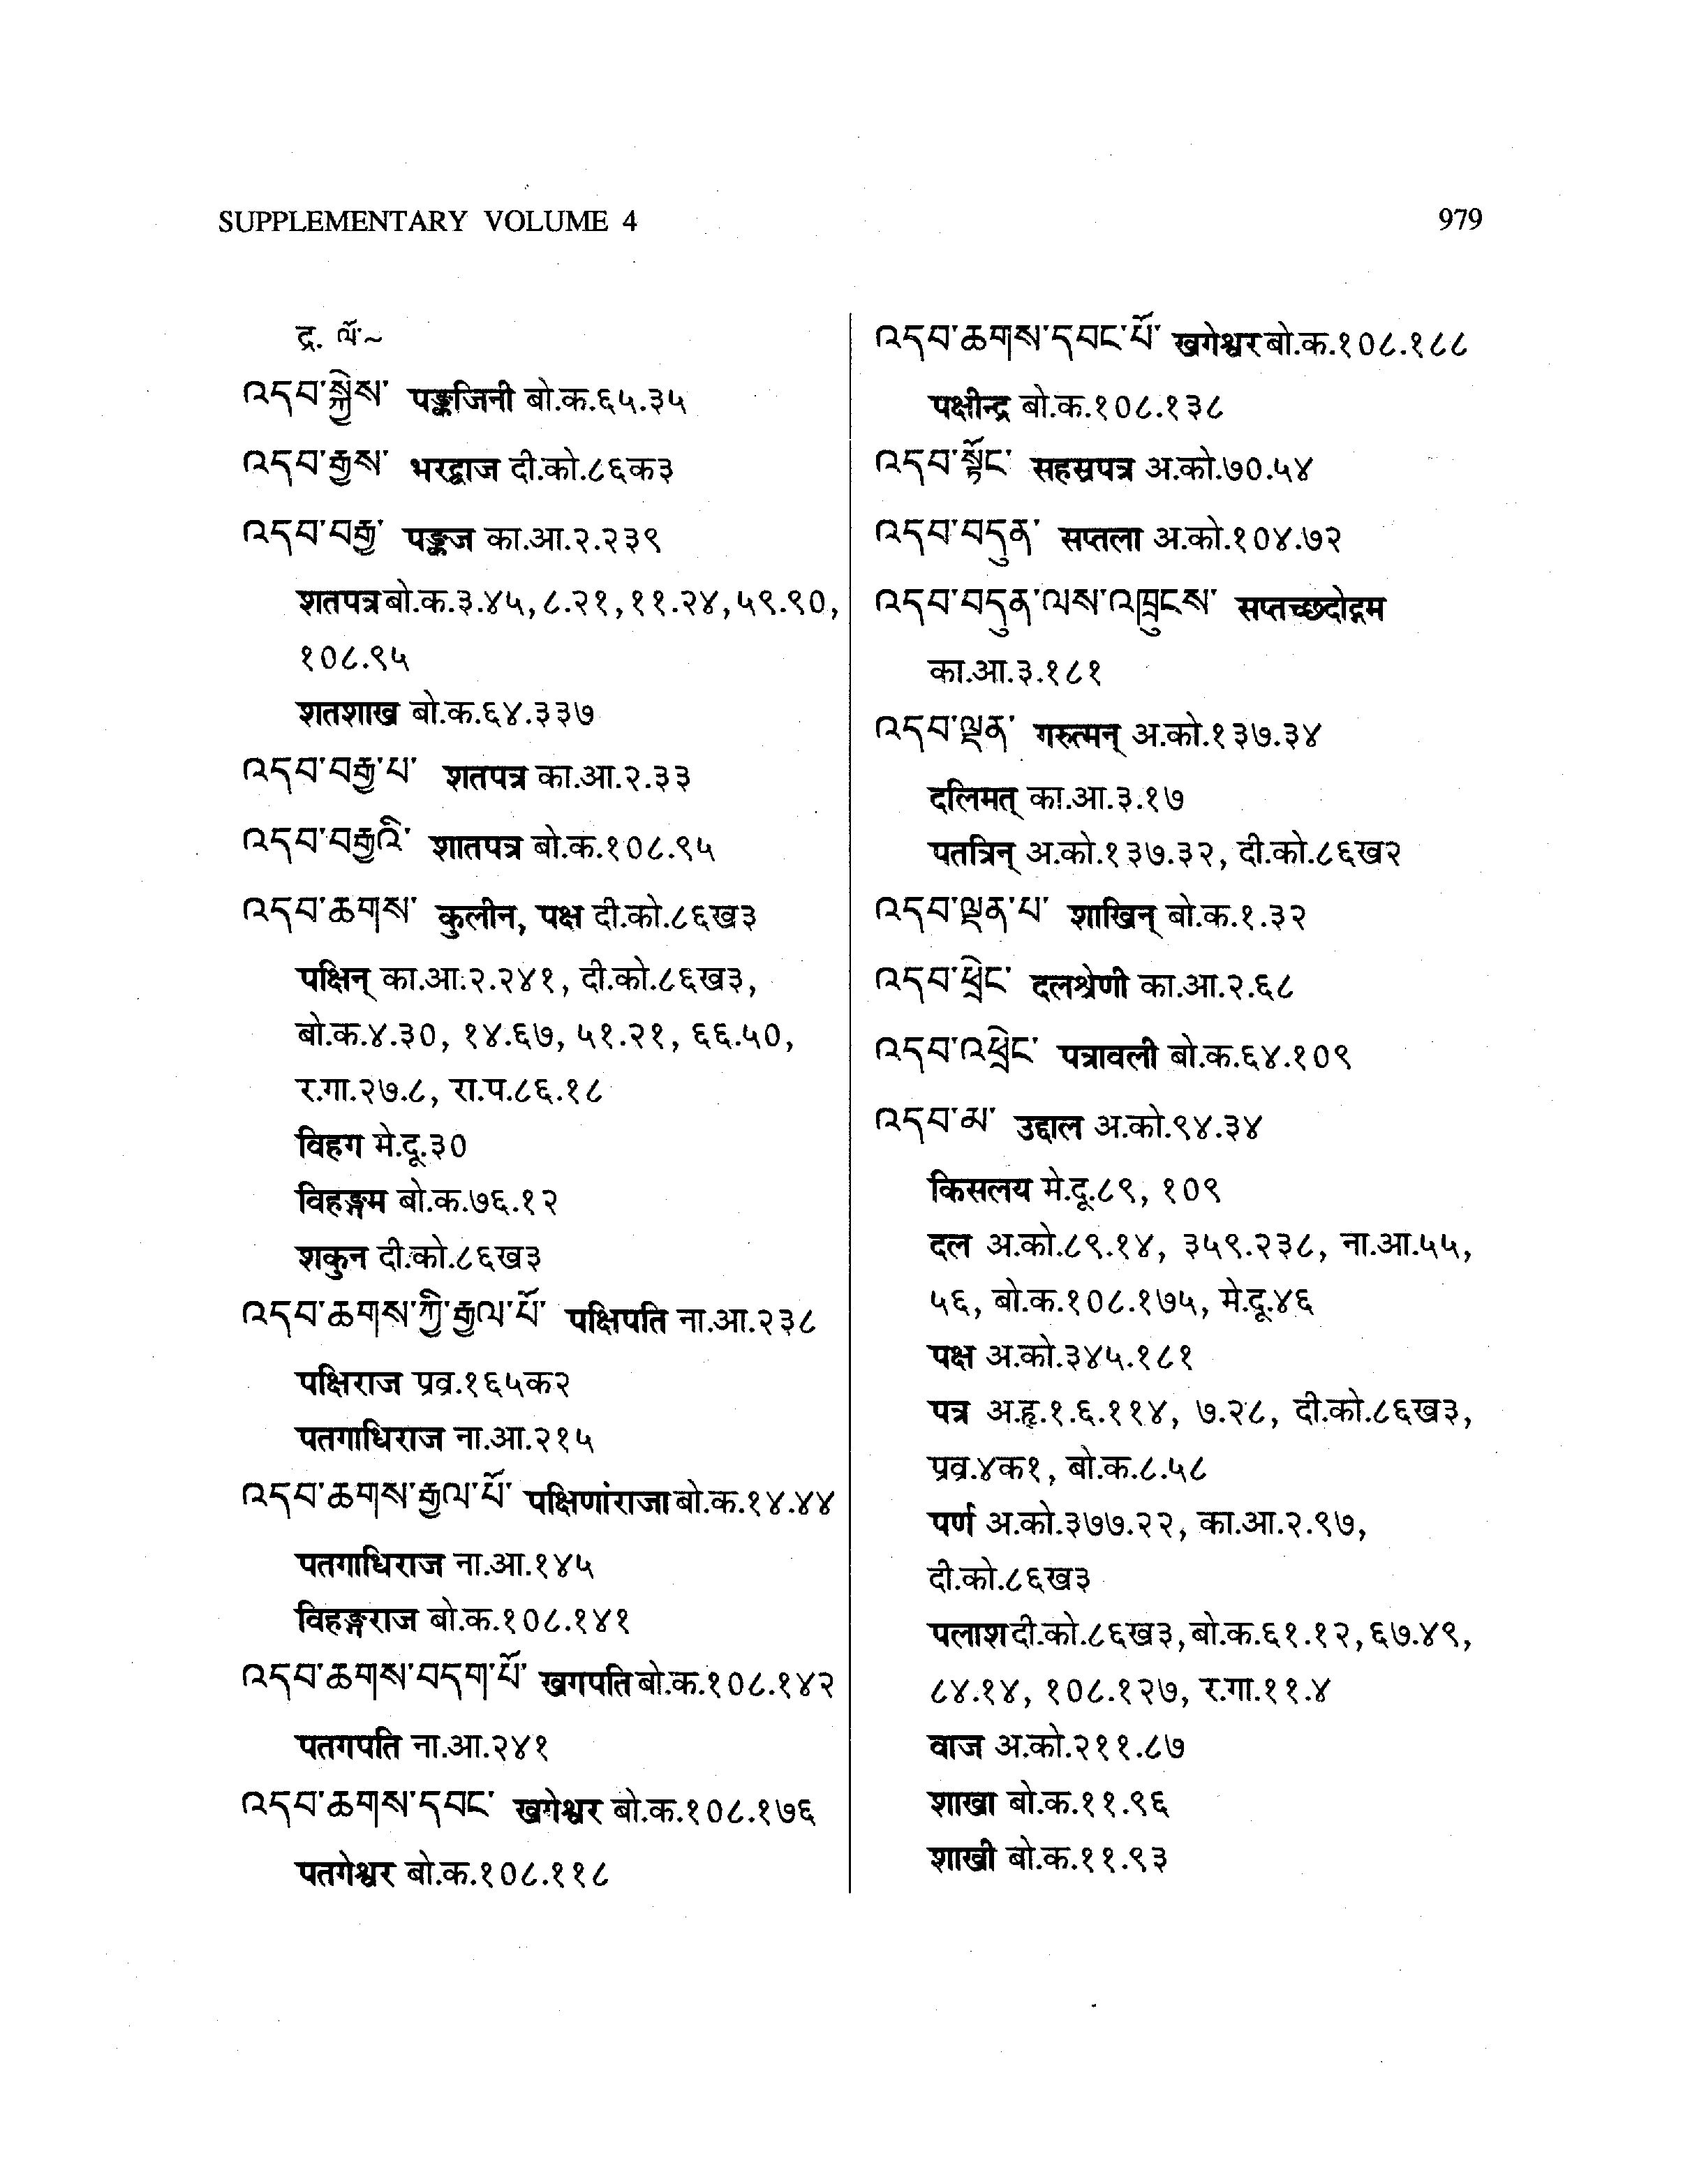 SUPPLEMENTARY VOLUME 4 979
द्र. ལོ་~
འདབ་སྐྱེས་ पङ्कजिनी बो.क.६५.३५
འདབ་རྒྱས་ भरद्वाज दी.को.८६क३
འདབ་བརྒྱ་ पङ्कज का.आ.२.२३९
शतपत्र बो.क.३.४५, ८.२१, ११.२४, ५९.९०,
१०८.९५
शतशाख बो.क.६४.३३७
འདབ་བརྒྱ་པ་ शतपत्र का.आ.२.३३
འདབ་བརྒྱའི་ शातपत्र बो.क.१०८.९५
འདབ་ཆགས་ कुलीन, पक्ष दी.को.८६ख३
पक्षिन् का.आ.२.२४१, दी.को.८६ख३,
बो.क.४.३०, १४.६७, ५१.२१, ६६.५०,
र.गा.२७.८, रा.प.८६.१८
विहग मे.दू.३०
विहङ्गम बो.क.७६.१२
शकुन दी.को.८६ख३
འདབ་ཆགས་ཀྱི་རྒྱལ་པོ་ पक्षिपति ना.आ.२३८
पक्षिराज प्रव्र.१६५क२
पतगाधिराज ना.आ.२१५
འདབ་ཆགས་རྒྱལ་པོ་ पक्षिणांराजा बो.क.१४.४४
पतगाधिराज ना.आ.१४५
विहङ्गराज बो.क.१०८.१४१
འདབ་ཆགས་བདག་པོ་ खगपति बो.क.१०८.१४२
पतगपति ना.आ.२४१
འདབ་ཆགས་དབང་ खगेश्वर बो.क.१०८.१७६
पतगेश्वर बो.क.१०८.११८
འདབ་ཆགས་དབང་པོ་ खगेश्वर बो.क.१०८.१८८
पक्षीन्द्र बो.क.१०८.१३८
འདབ་སྟོང་ सहस्रपत्र अ.को.७०.५४
འདབ་བདུན་ सप्तला अ.को.१०४.७२
འདབ་བདུན་ལས་འཁྲུངས་ सप्तच्छदोद्गम
का.आ.३.१८१
འདབ་ལྡན་ गरुत्मन् अ.को.१३७.३४
दलिमत् का.आ.३.१७
पतत्रिन् अ.को.१३७.३२, दी.को.८६ख२
འདབ་ལྡན་པ་ शाखिन् बो.क.१.३२
འདབ་ཕྲེང་ दलश्रेणी का.आ.२.६८
འདབ་འཕྲེང་ पत्रावली बो.क.६४.१०९
འདབ་མ་ उद्दाल अ.को.९४.३४
किसलय मे.दू.८९, १०९
दल अ.को.८९.१४, ३५९.२३८, ना.आ.५५,
५६, बो.क.१०८.१७५, मे.दू.४६
पक्ष अ.को.३४५.१८१
पत्र अ.हृ.१.६.११४, ७.२८, दी.को.८६ख३,
प्रव्र.४क१, बो.क.८.५८
पर्ण अ.को.३७७.२२, का.आ.२.९७,
दी.को.८६ख३
पलाश दी.को.८६ख३, बो.क.६१.१२, ६७.४९,
८४.१४, १०८.१२७, र.गा.११.४
वाज अ.को.२११.८७
शाखा बो.क.११.९६
शाखी बो.क.११.९३